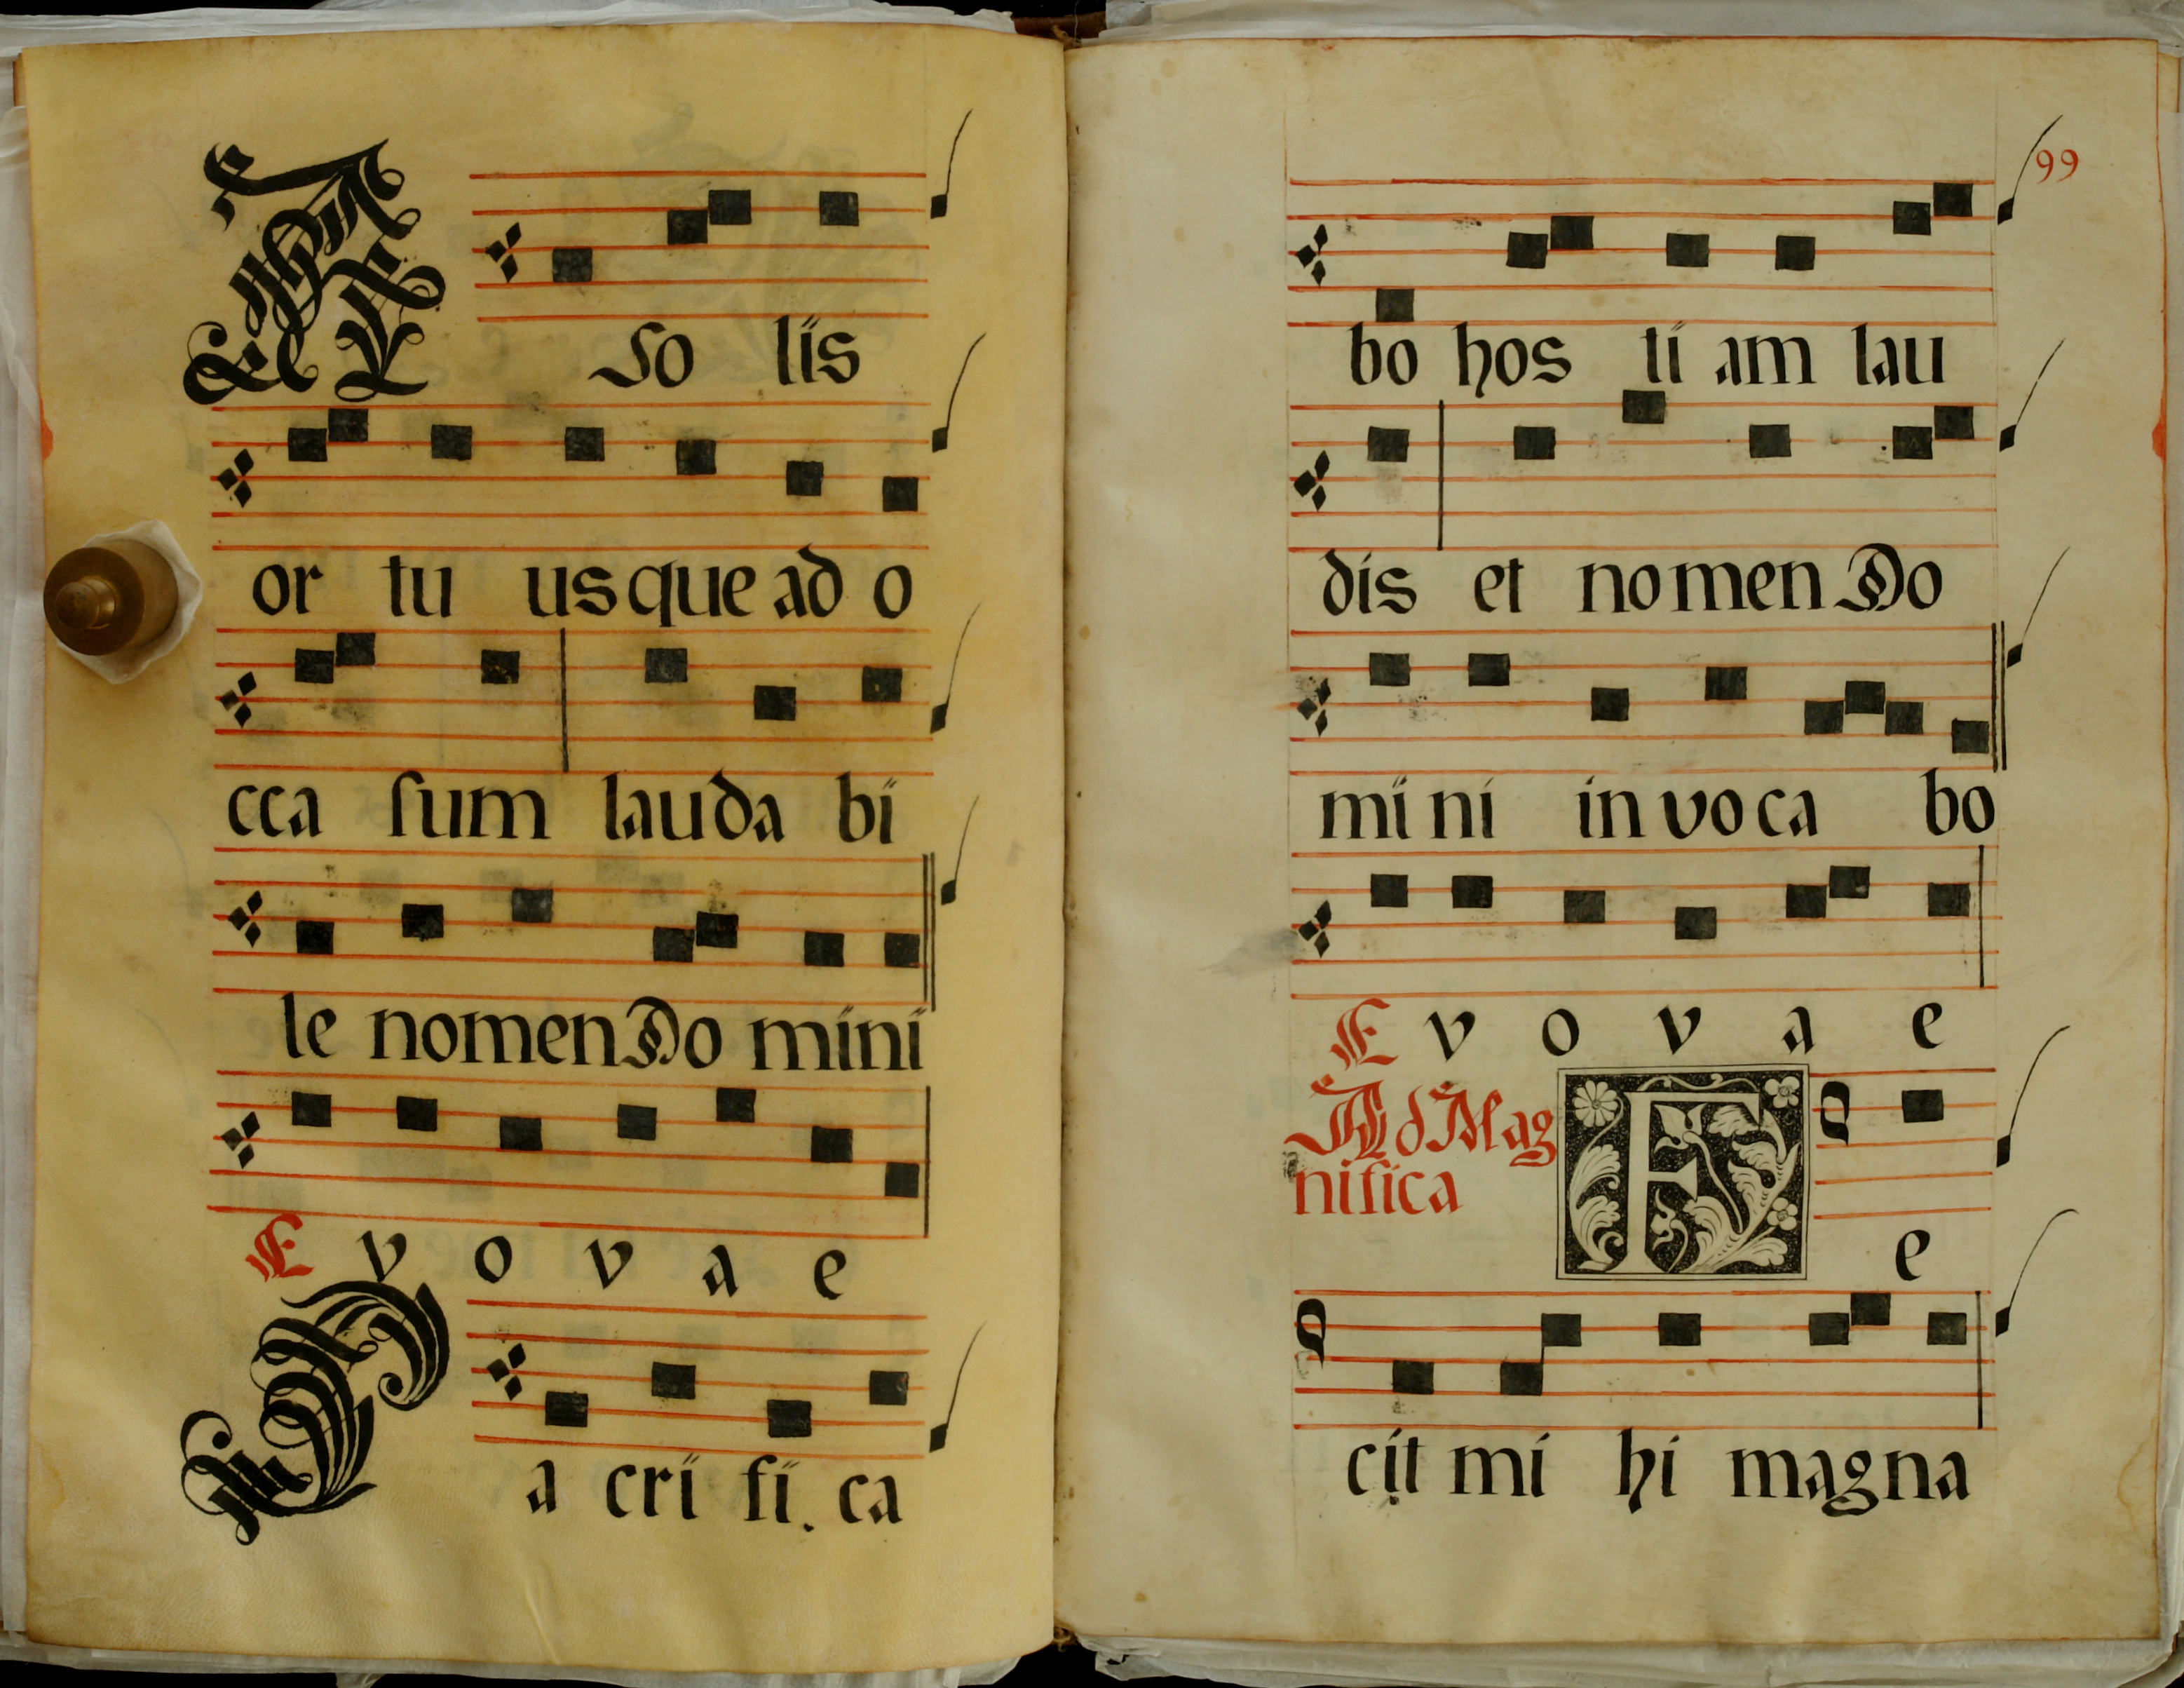 A so lis
or tu usque ad o
cca sum lauda bi
le nomen Do mini
E v o v a e
S a cri fi. ca
99
bo hos ti am lau
dis et nomen Do
mini invoca bo
E v o v a e
Ad Mag
nifica
F e
cit mi hi magna